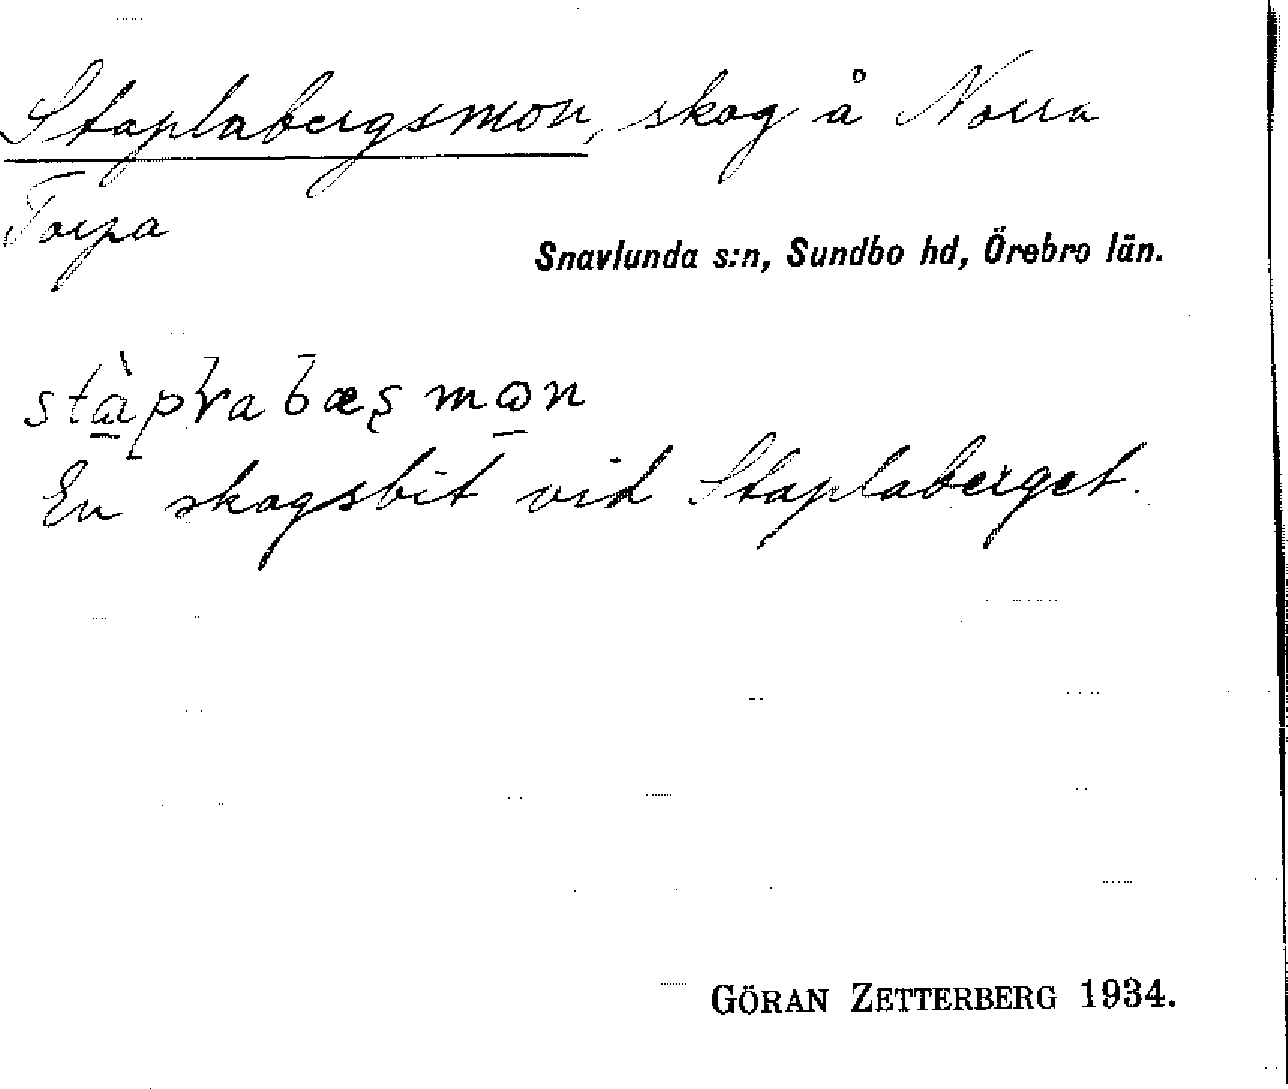 Staplabergsmon, skog å Norra
Torpa
Snavlunda s:n, Sundbo hd, Örebro län.
En skogsbit vid Staplaberget.
GÖRAN ZETTERBERG 1934.